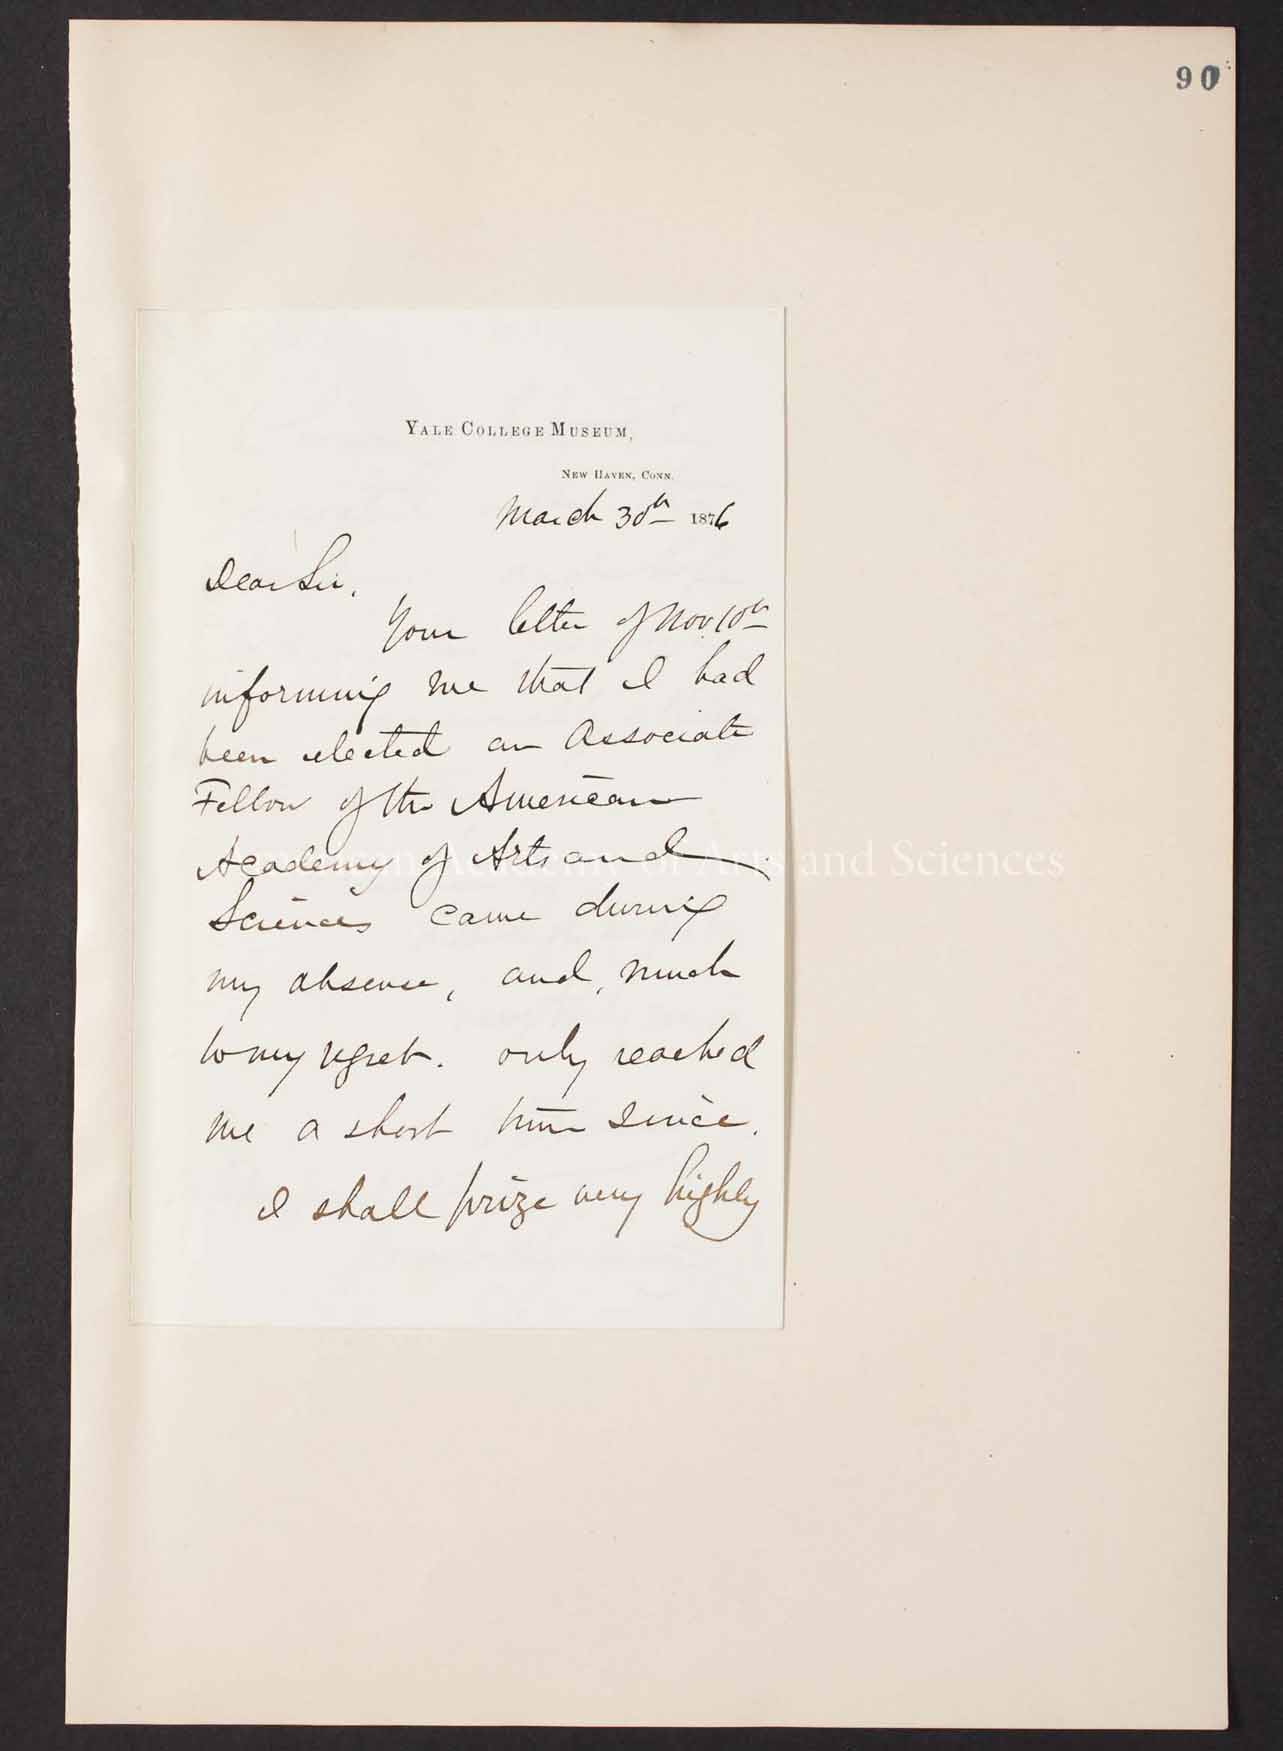 90
YALE COLLEGE MUSEUM,
NEW HAVEN, CONN.
March 30th 1876
Dear Sir,
Your letter of Nov. 10th
informing me that I had
been elected an Associate
Fellow of the American
Academy of Arts and
Sciences came during
my absence, and, much
to my regret. only reached
me a short time since.
I shall prize very highly
American Academy of Arts and Sciences